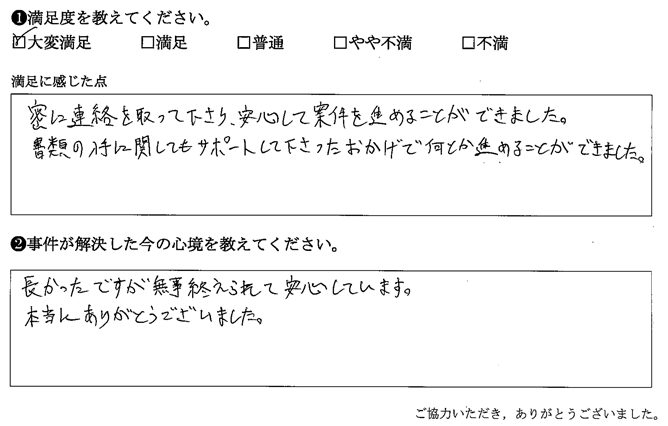 ❶満足度を教えてください。
☑大変満足 □満足 □普通 □やや不満 □不満
満足に感じた点
密に連絡を取って下さり、安心して案件を進めることができました。
書類の件に関してもサポートして下さったおかげで何とか進めることができました。
❷事件が解決した今の心境を教えてください。
長かったですが無事終えられて安心しています。
本当にありがとうございました。
ご協力いただき，ありがとうございました。